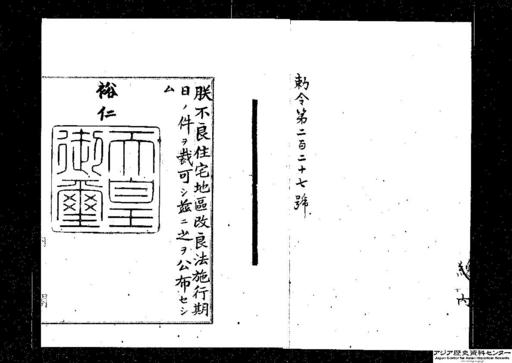 勅令第二百二十七號
朕不良住宅地區改良法施行期
日ノ件ヲ裁可シ茲ニ之ヲ公布セシ
ム
裕仁
天皇
御璽
アジア歴史資料センター
Japan Center for Asian Historical Records